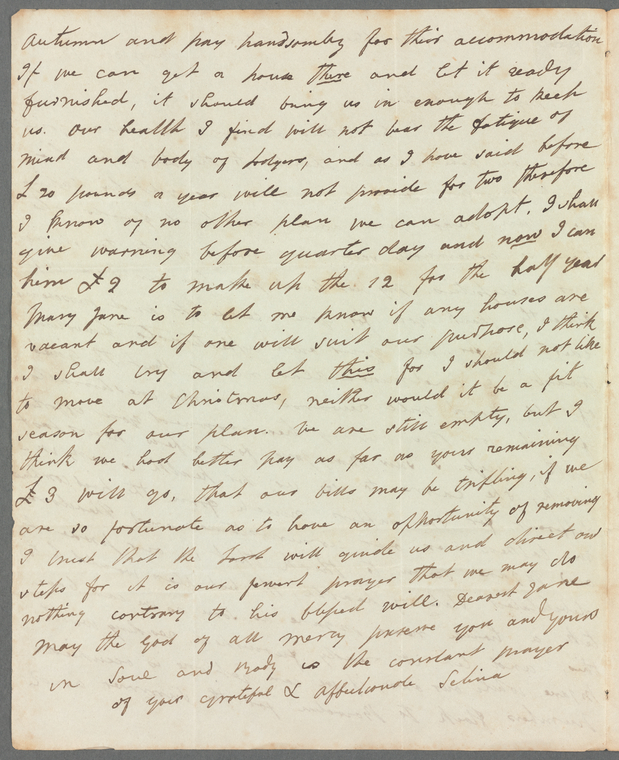 Autumn and pay handsomely for their accommodation
If we can get a house there and let it ready
furnished, it should bring us in enough to keep
us. Our health I find will not bear the fatigue of
mind and body of lodgers, and as I have said before
£ 20 pounds a year will not provide for two therefore
I know of no other plan we can adopt. I shall
give warning before quarter day and now I can
him £9 to make up the 12 for the half year
Mary Jane is to let me know if any houses are
vacant and if one will suit our purpose, I think
I shall try and let this for I should not like
to move at Christmas, neither would it be a fit
season for our plan. We are still empty, but I
think we had better pay as far as yours remaining
£3 will go, that our bills may be trifling, if we
are so fortunate as to have an opportunity of removing
I trust that the Lord will guide us and direct our
steps for it is our fervent prayer that we may do
nothing contrary to his blessed will. Dearest Jane
may the God of all mercy preserve you and yours
in Soul and Body is the constant prayer
of your grateful & affectionate Selina